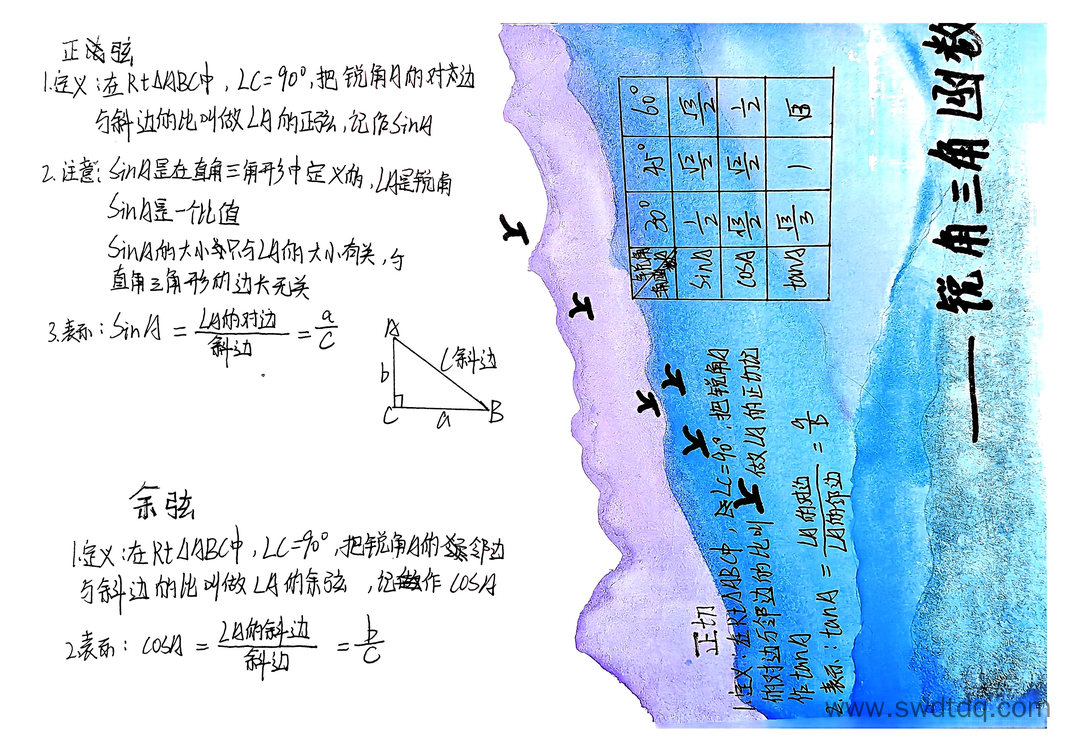 正弦
1.定义:在Rt△ABC中,∠C=90°,把锐角A的对边
与斜边的比叫做∠A的正弦,记作SinA
2.注意:SinA是在直角三角形中定义的,∠A是锐角
SinA是一个比值
SinA的大小只与∠A的大小有关,与
直角三角形的边长无关
3.表示:SinA=∠A的对边/斜边=a/C
A
b
C斜边
C
a
B
余弦
1.定义:在Rt△ABC中,∠C=90°,把锐角A的邻边
与斜边的比叫做∠A的余弦,记作COSA
2.表示:COSA=∠A的斜边/斜边=b/C
——锐角三角函数
锐角 30° 45° 60°
SinA 1/2 √2/2 √3/2
COSA √3/2 √2/2 1/2
tanA √3/3 1 √3
正切
1.定义:在Rt△ABC中,∠C=90°,把锐角A
的对边与邻边的比叫做∠A的正切记
作tanA
2.表示:tanA=∠A的对边/∠A的邻边=a/b
www.swdtdq.com